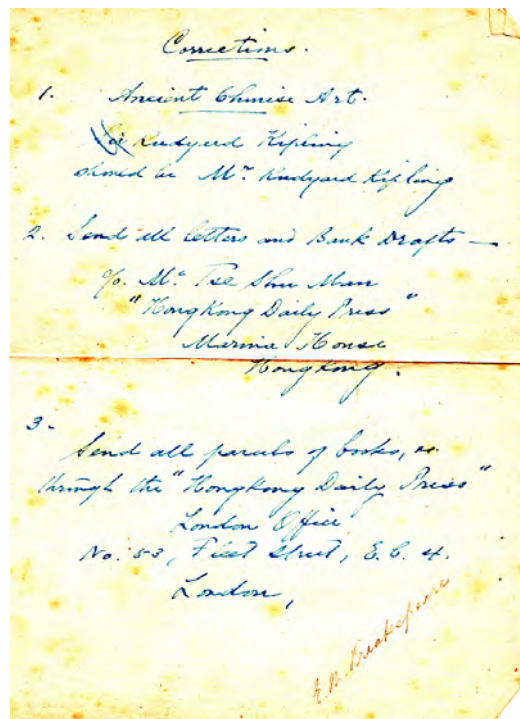 Corrections.
1. Ancient Chinese Art.
Sir Rudyard Kipling
should be Mr Rudyard Kipling
2. Send all letters and Bank Drafts —
c/o. Mr. Tse Shu Man
"HongKong Daily Press"
Marina House
HongKong.
3-
Send all parcels of books, 
through the "HongKong Daily Press"
London Office
No. 53, Fleet Street, E.C. 4.
London,